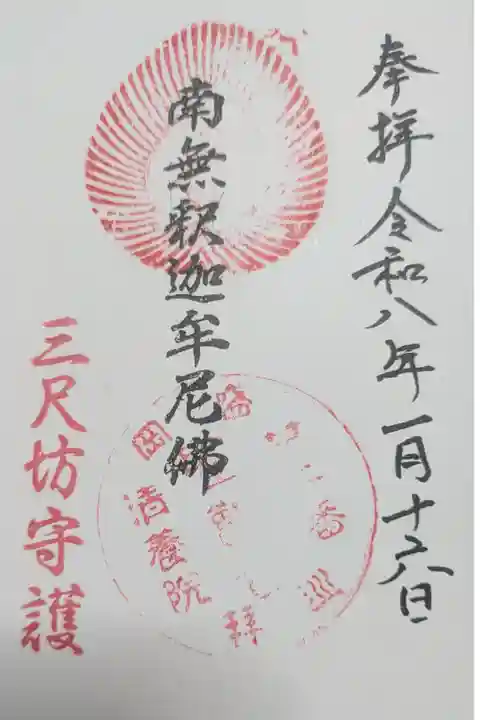 奉拝令和八年一月十六日
南無釈迦牟尼佛
三尺坊守護
清養院